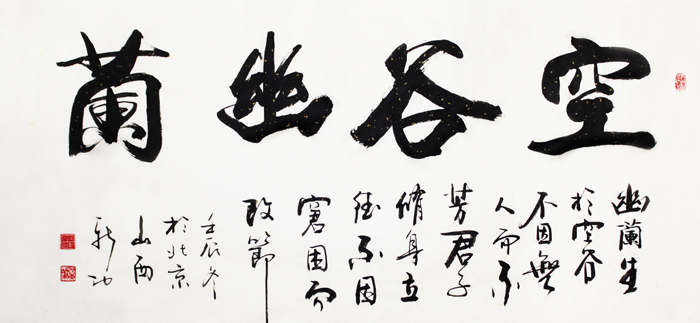 空谷幽蘭
幽蘭生
於空谷
不因無
人而不
芳君子
脩身立
德不因
窮困而
改節
壬辰冬
於北京
山西